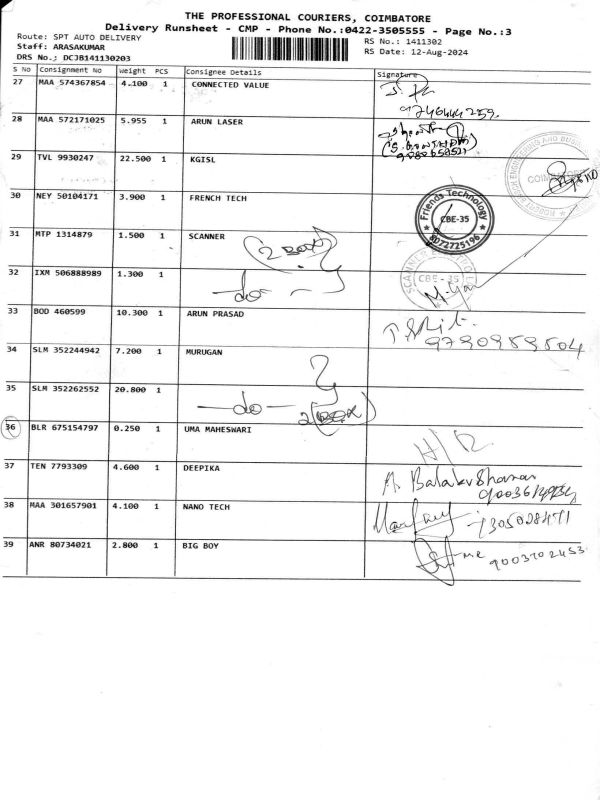 THE PROFESSIONAL COURIERS, COIMBATORE
Delivery Runsheet - CMP - Phone No.:0422-3505555 - Page No.:3
Route: SPT AUTO DELIVERY
RS No.: 1411302
Staff: ARASAKUMAR
RS Date: 12-Aug-2024
DRS No.; DCJB141130203
S No Consignment No Weight PCS Consignee Details Signature
27 MAA 574367854 4.100 1 CONNECTED VALUE
9746444259
28 MAA 572171025 5.955 1 ARUN LASER
29 TVL 9930247 22.500 1 KGISL
30 NEY 50104171 3.900 1 FRENCH TECH
Friends Technology
CBE-35
8072725196
31 MTP 1314879 1.500 1 SCANNER
(2 BOX)
32 IXM 506888989 1.300 1 -do-
CBE - 35
33 BOD 460599 10.300 1 ARUN PRASAD
9790959504
34 SLM 352244942 7.200 1 MURUGAN
35 SLM 352262552 20.800 1 -do-
2 BOX
36 BLR 675154797 0.250 1 UMA MAHESWARI
37 TEN 7793309 4.600 1 DEEPIKA
38 MAA 301657901 4.100 1 NANO TECH
7305028471
39 ANR 80734021 2.800 1 BIG BOY
9003202453